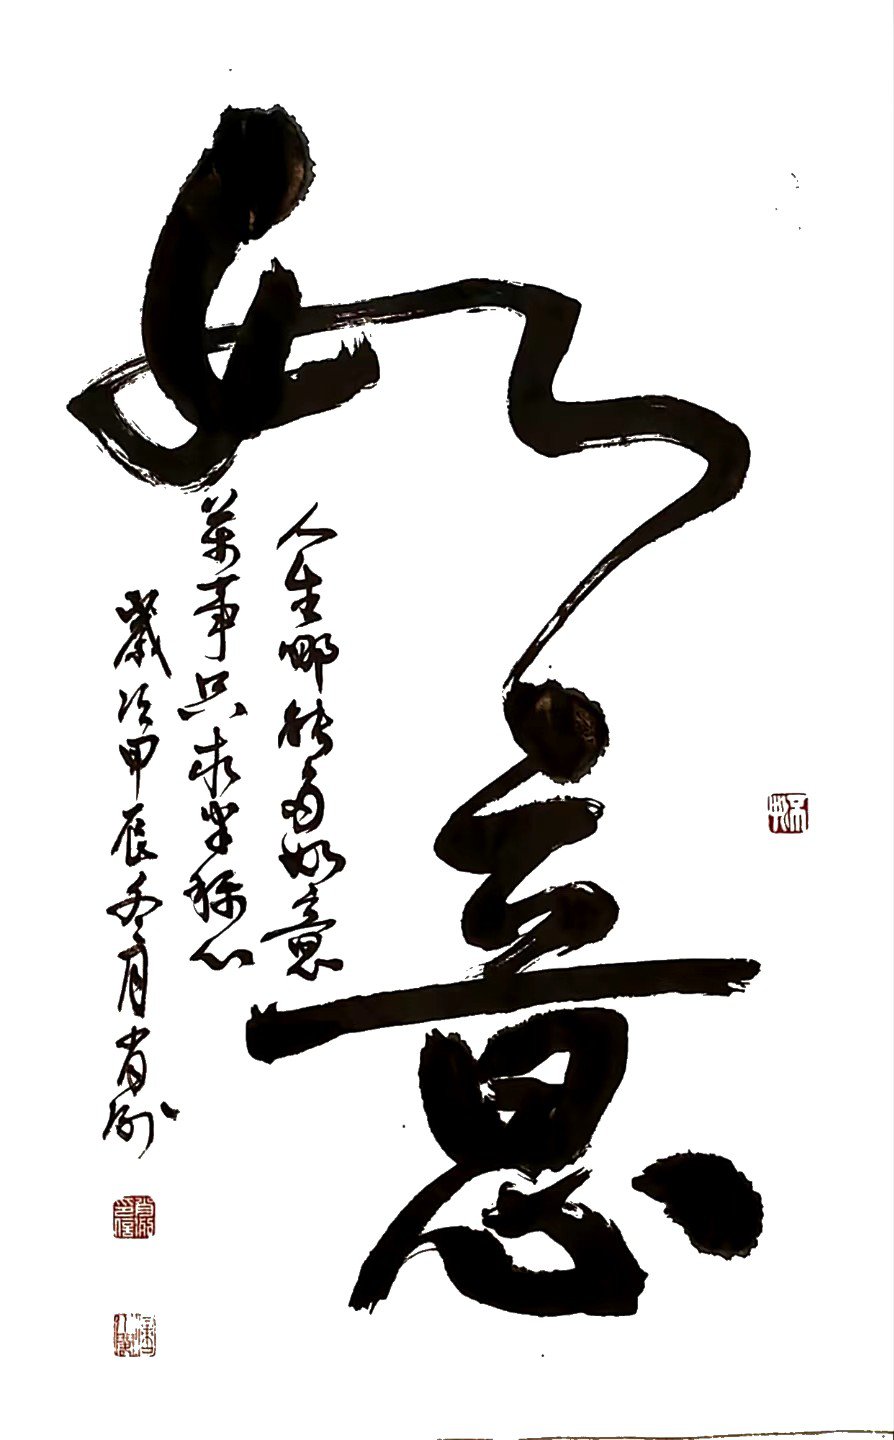 如意
人生哪能多如意
萬事只求半称心
歲次甲辰冬月肖